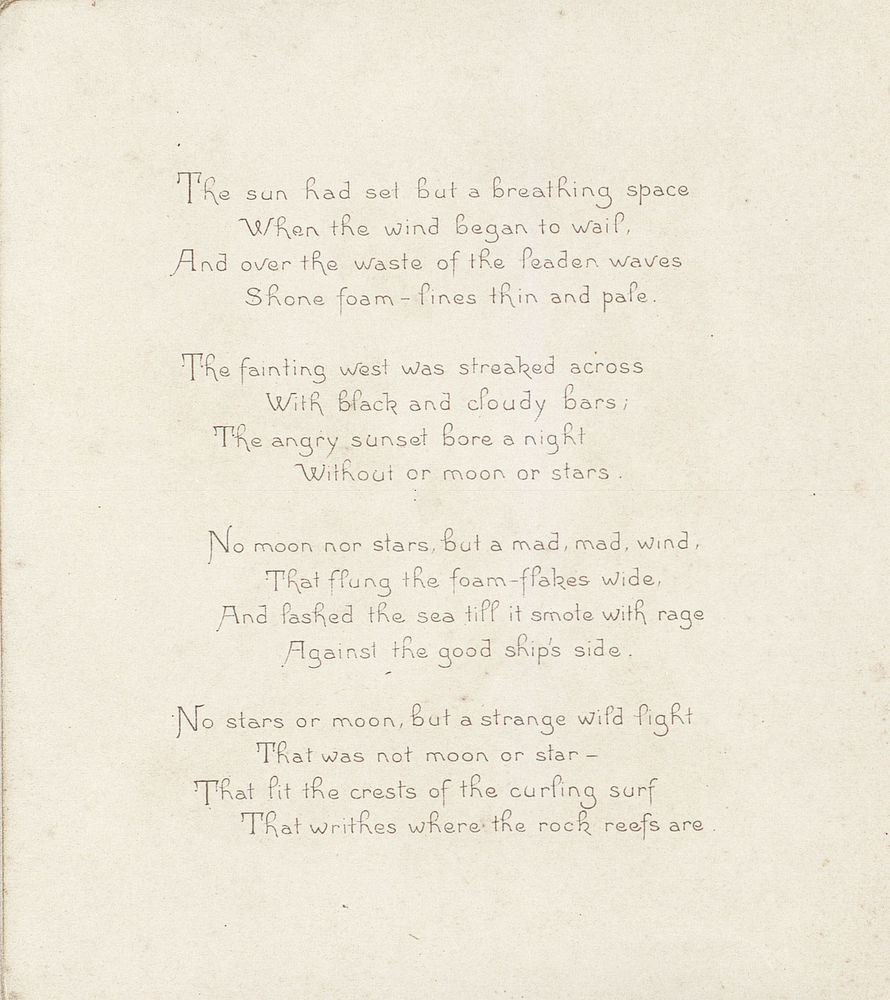 The sun had set but a breathing space
When the wind began to wail,
And over the waste of the leaden waves
Shone foam-lines thin and pale.
The fainting west was streaked across
With black and cloudy bars;
The angry sunset bore a night
Without or moon or stars.
No moon nor stars, but a mad, mad, wind,
That flung the foam-flakes wide,
And lashed the sea till it smote with rage
Against the good ship's side.
No stars or moon, but a strange wild light
That was not moon or star -
That lit the crests of the curling surf
That writhes where the rock reefs are.